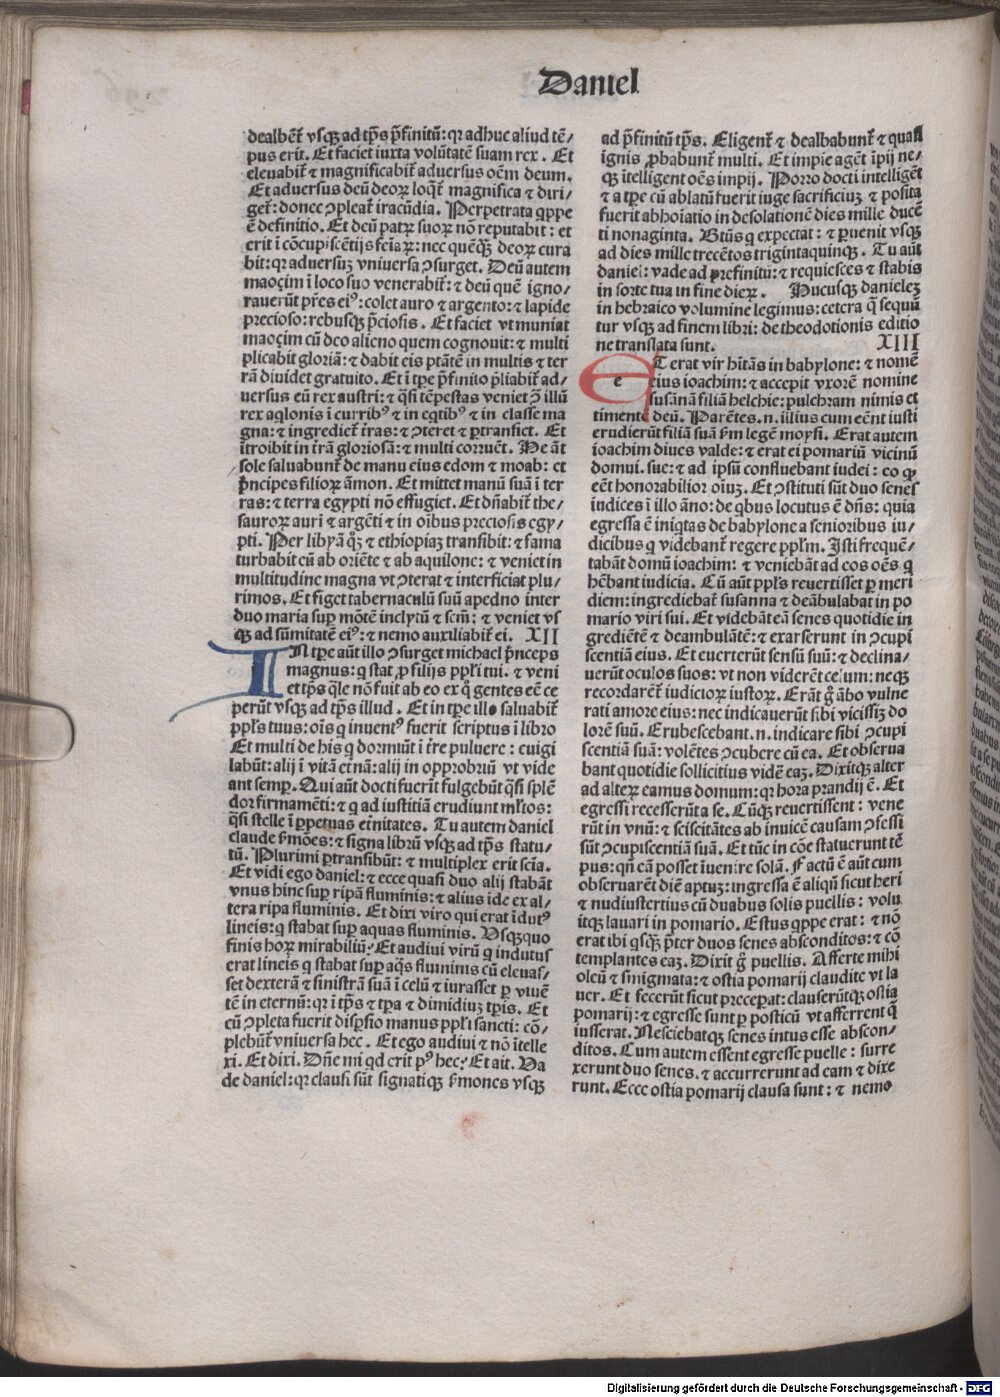 Daniel
dealbēt᷑ vsqꝫ ad tp̄s p̄finitū: qꝛ adhuc aliud tē⸗
pus erit. Et faciet iuxta volūtatē suam rex. Et
eleuabit᷑ ⁊ magnificabit᷑ aduersus oēm deum.
Et aduersus deū deoꝝ loq̄t᷑ magnifica ⁊ diri⸗
get᷑: donec ꝯpleat᷑ iracūdia. Perpetrata q̥ppe
ē definitio. Et deū patꝝ suoꝝ nō reputabit: et
erit ī cōcupiscētijs fēiaꝝ: nec quēq̄ꝫ deoꝝ cura
bit: qꝛ aduersuꝫ vniuersa ꝯsurget. Deū autem
maoçim ī loco suo venerabit᷑: ⁊ deū quē igno⸗
rauerūt pr̄es ei⁹: colet auro ⁊ argento: ⁊ lapide
precioso: rebusqꝫ p̄ciosis. Et faciet vt muniat
maoçim cū deo alieno quem cognouit: ⁊ multi
plicabit gloriā: ⁊ dabit eis ptātē in multis ⁊ ter
rā diuidet gratuito. Et ī tꝑe p̄finito p̄liabit᷑ ad⸗
uersus eū rex austri: ⁊ q̄si tēpestas veniet ꝯ illū
rex aq̥lonis ī currib⁹ ⁊ in eq̥tib⁹ ⁊ in classe ma
gna: ⁊ ingrediet᷑ t̄ras: ⁊ ꝯteret ⁊ ꝑtransiet. Et
ītroibit in t̄rā gloriosā: ⁊ multi corruēt. He āt
sole saluabunt᷑ de manu eius edom ⁊ moab: et
p̄ncipes filioꝝ āmon. Et mittet manū suā ī ter
ras: ⁊ terra egypti nō effugiet. Et dn̄abit᷑ the⸗
sauroꝝ auri ⁊ argēti ⁊ in oībus preciosis egy⸗
pti. Per libyā q̊ꝫ ⁊ ethiopiaꝫ transibit: ⁊ fama
turbabit cū ab oriēte ⁊ ab aquilone: ⁊ veniet in
multitudine magna vt ꝯterat ⁊ interficiat plu⸗
rimos. Et figet tabernaculū suū apedno inter
duo maria suꝑ mōtē inclytū ⁊ scm̄: ⁊ veniet vs
qꝫ ad sūmitatē ei⁹: ⁊ nemo auxiliabit᷑ ei. XII
IN tꝑe aūt illo ꝯsurget michael p̄nceps
magnus: q̥ stat ꝓ filijs pp̄li tui. ⁊ veni
et tp̄s q̄le nō fuit ab eo ex q̊ gentes eē ce
perūt vsqꝫ ad tp̄s illud. Et in tꝑe illo saluabit᷑
pp̄ls tuus: oīs q̥ inuent⁹ fuerit scriptus ī libro
Et multi de his q̥ dormiūt ī t̄re puluere: euigi
labūt: alij ī vitā etnā: alij in opprobriū vt vide
ant semꝑ. Qui aūt docti fuerīt fulgebūt q̄si splē
dor firmamēti: ⁊ q̥ ad iustitiā erudiunt ml̄tos:
q̄si stelle ī ꝑpetuas et̄nitates. Tu autem daniel
claude s̄mōes: ⁊ signa librū vsqꝫ ad tp̄s statu⸗
tū. Plurimi ꝑtransibūt: ⁊ multiplex erit scīa.
Et vidi ego daniel: ⁊ ecce quasi duo alij stabāt
vnus hinc suꝑ ripā fluminis: ⁊ alius īde ex al⸗
tera ripa fluminis. Et dixi viro qui erat īdut⁹
lineis: q̥ stabat suꝑ aquas fluminis. Vsqꝫquo
finis hoꝝ mirabiliū? Et audiui virū q̥ indutus
erat lineis q̥ stabat suꝑ aq̄s fluminis cū eleuas⸗
set dexterā ⁊ sinistrā suā ī celū ⁊ iurasset ꝑ viuē
tē in eternū: qꝛ ī tp̄s ⁊ tꝑa ⁊ dimidiuꝫ tꝑis. Et
cū ꝯpleta fuerit disꝑsio manus pp̄li sancti: cō⸗
plebūt᷑ vniuersa hec. Et ego audiui ⁊ nō ītelle
xi. Et dixi. Dn̄e mi qd̄ erit p⁹ hec? Et ait. Va
de daniel: qꝛ clausi sūt signatiqꝫ s̄mones vsqꝫ
ad p̄finitū tp̄s. Eligent᷑ ⁊ dealbabunt᷑ ⁊ quasi
ignis ꝓbabunt᷑ multi. Et impie agēt īpij ne⸗
qꝫ ītelligent oēs impij. Porro docti intelligēt
⁊ a tꝑe cū ablatū fuerit iuge sacrificiuꝫ ⁊ posita
fuerit abhoīatio in desolationē dies mille ducē
ti nonaginta. Bt̄us q̥ expectat: ⁊ ꝑuenit vsqꝫ
ad dies mille trecētos trigintaquinqꝫ. Tu aūt
daniel: vade ad prefinitū: ⁊ requiesces ⁊ stabis
in sorte tua in fine dieꝝ. Hucusqꝫ danieleꝫ
in hebraico volumine legimus: cetera q̄ sequū
tur vsqꝫ ad finem libri: de theodotionis editio
ne translata sunt. XIII
ET erat vir hītās in babylone: ⁊ nomē
eius ioachim: ⁊ accepit vxorē nomine
susānā filiā helchie: pulchram nimis et
timentē deū. Parētes.n. illius cum eēnt iusti
erudierūt filiā suā s̄m legē moysi. Erat autem
ioachim diues valde: ⁊ erat ei pomariū vicinū
domui. sue: ⁊ ad ipsū confluebant iudei: eo ꝙ
eēt honorabilior oīuꝫ. Et ꝯstituti sūt duo senes
iudices ī illo āno: de q̥bus locutus ē dn̄s: quia
egressa ē iniq̥tas de babylone a senioribus iu⸗
dicibus q̥ videbant᷑ regere pp̄lm. Isti frequē⸗
tabāt domū ioachim: ⁊ veniebāt ad eos oēs q̥
hēbant iudicia. Cū aūt pp̄ls reuertisset ꝑ meri
diem: ingrediebat᷑ susanna ⁊ deābulabat in po
mario viri sui. Et videbāt eā senes quotidie in
gredientē ⁊ deambulātē: ⁊ exarserunt in ꝯcupi
scentiā eius. Et euerterūt sensū suū: ⁊ declina⸗
uerūt oculos suos: vt non viderēt celum: neqꝫ
recordarēt᷑ iudicioꝝ iustoꝝ. Erāt g̊ ābo vulne
rati amore eius: nec indicauerūt sibi vicissiꝫ do
lorē suū. Erubescebant.n. indicare sibi ꝯcupi
scentiā suā: volētes ꝯcubere cū ea. Et obserua
bant quotidie sollicitius vidē eaꝫ. Dixitqꝫ alter
ad alteꝝ eamus domum: qꝛ hora prandij ē. Et
egressi recesserūt a se. Cūqꝫ reuertissent: vene
rūt in vnū: ⁊ sciscitātes ab inuicē causam ꝯfessi
sūt ꝯcupiscentiā suā. Et tūc in cōe statuerunt tē
pus: qn̄ eā posset īuenire solā. Factū ē aūt cum
obseruarēt diē aptuꝫ: ingressa ē aliqn̄ sicut heri
⁊ nudiustertius cū duabus solis puellis: volu
itqꝫ lauari in pomario. Estus q̥ppe erat: ⁊ nō
erat ibi q̥sq̄ꝫ p̄ter duos senes absconditos: ⁊ cō
templantes eaꝫ. Dixit g̊ puellis. Afferte mihi
oleū ⁊ smigmata: ⁊ ostia pomarij claudite vt la
uer. Et fecerūt sicut preceꝑat: clauserūtqꝫ ostia
pomarij: ⁊ egresse sunt ꝑ posticū vt afferrent q̄
iusserat. Nesciebatqꝫ senes intus esse abscon⸗
ditos. Cum autem essent egresse puelle: surre
xerunt duo senes. ⁊ accurrerunt ad eam ⁊ dixe
runt. Ecce ostia pomarij clausa sunt: ⁊ nemo
Digitalisierung gefördert durch die Deutsche Forschungsgemeinschaft - DFG